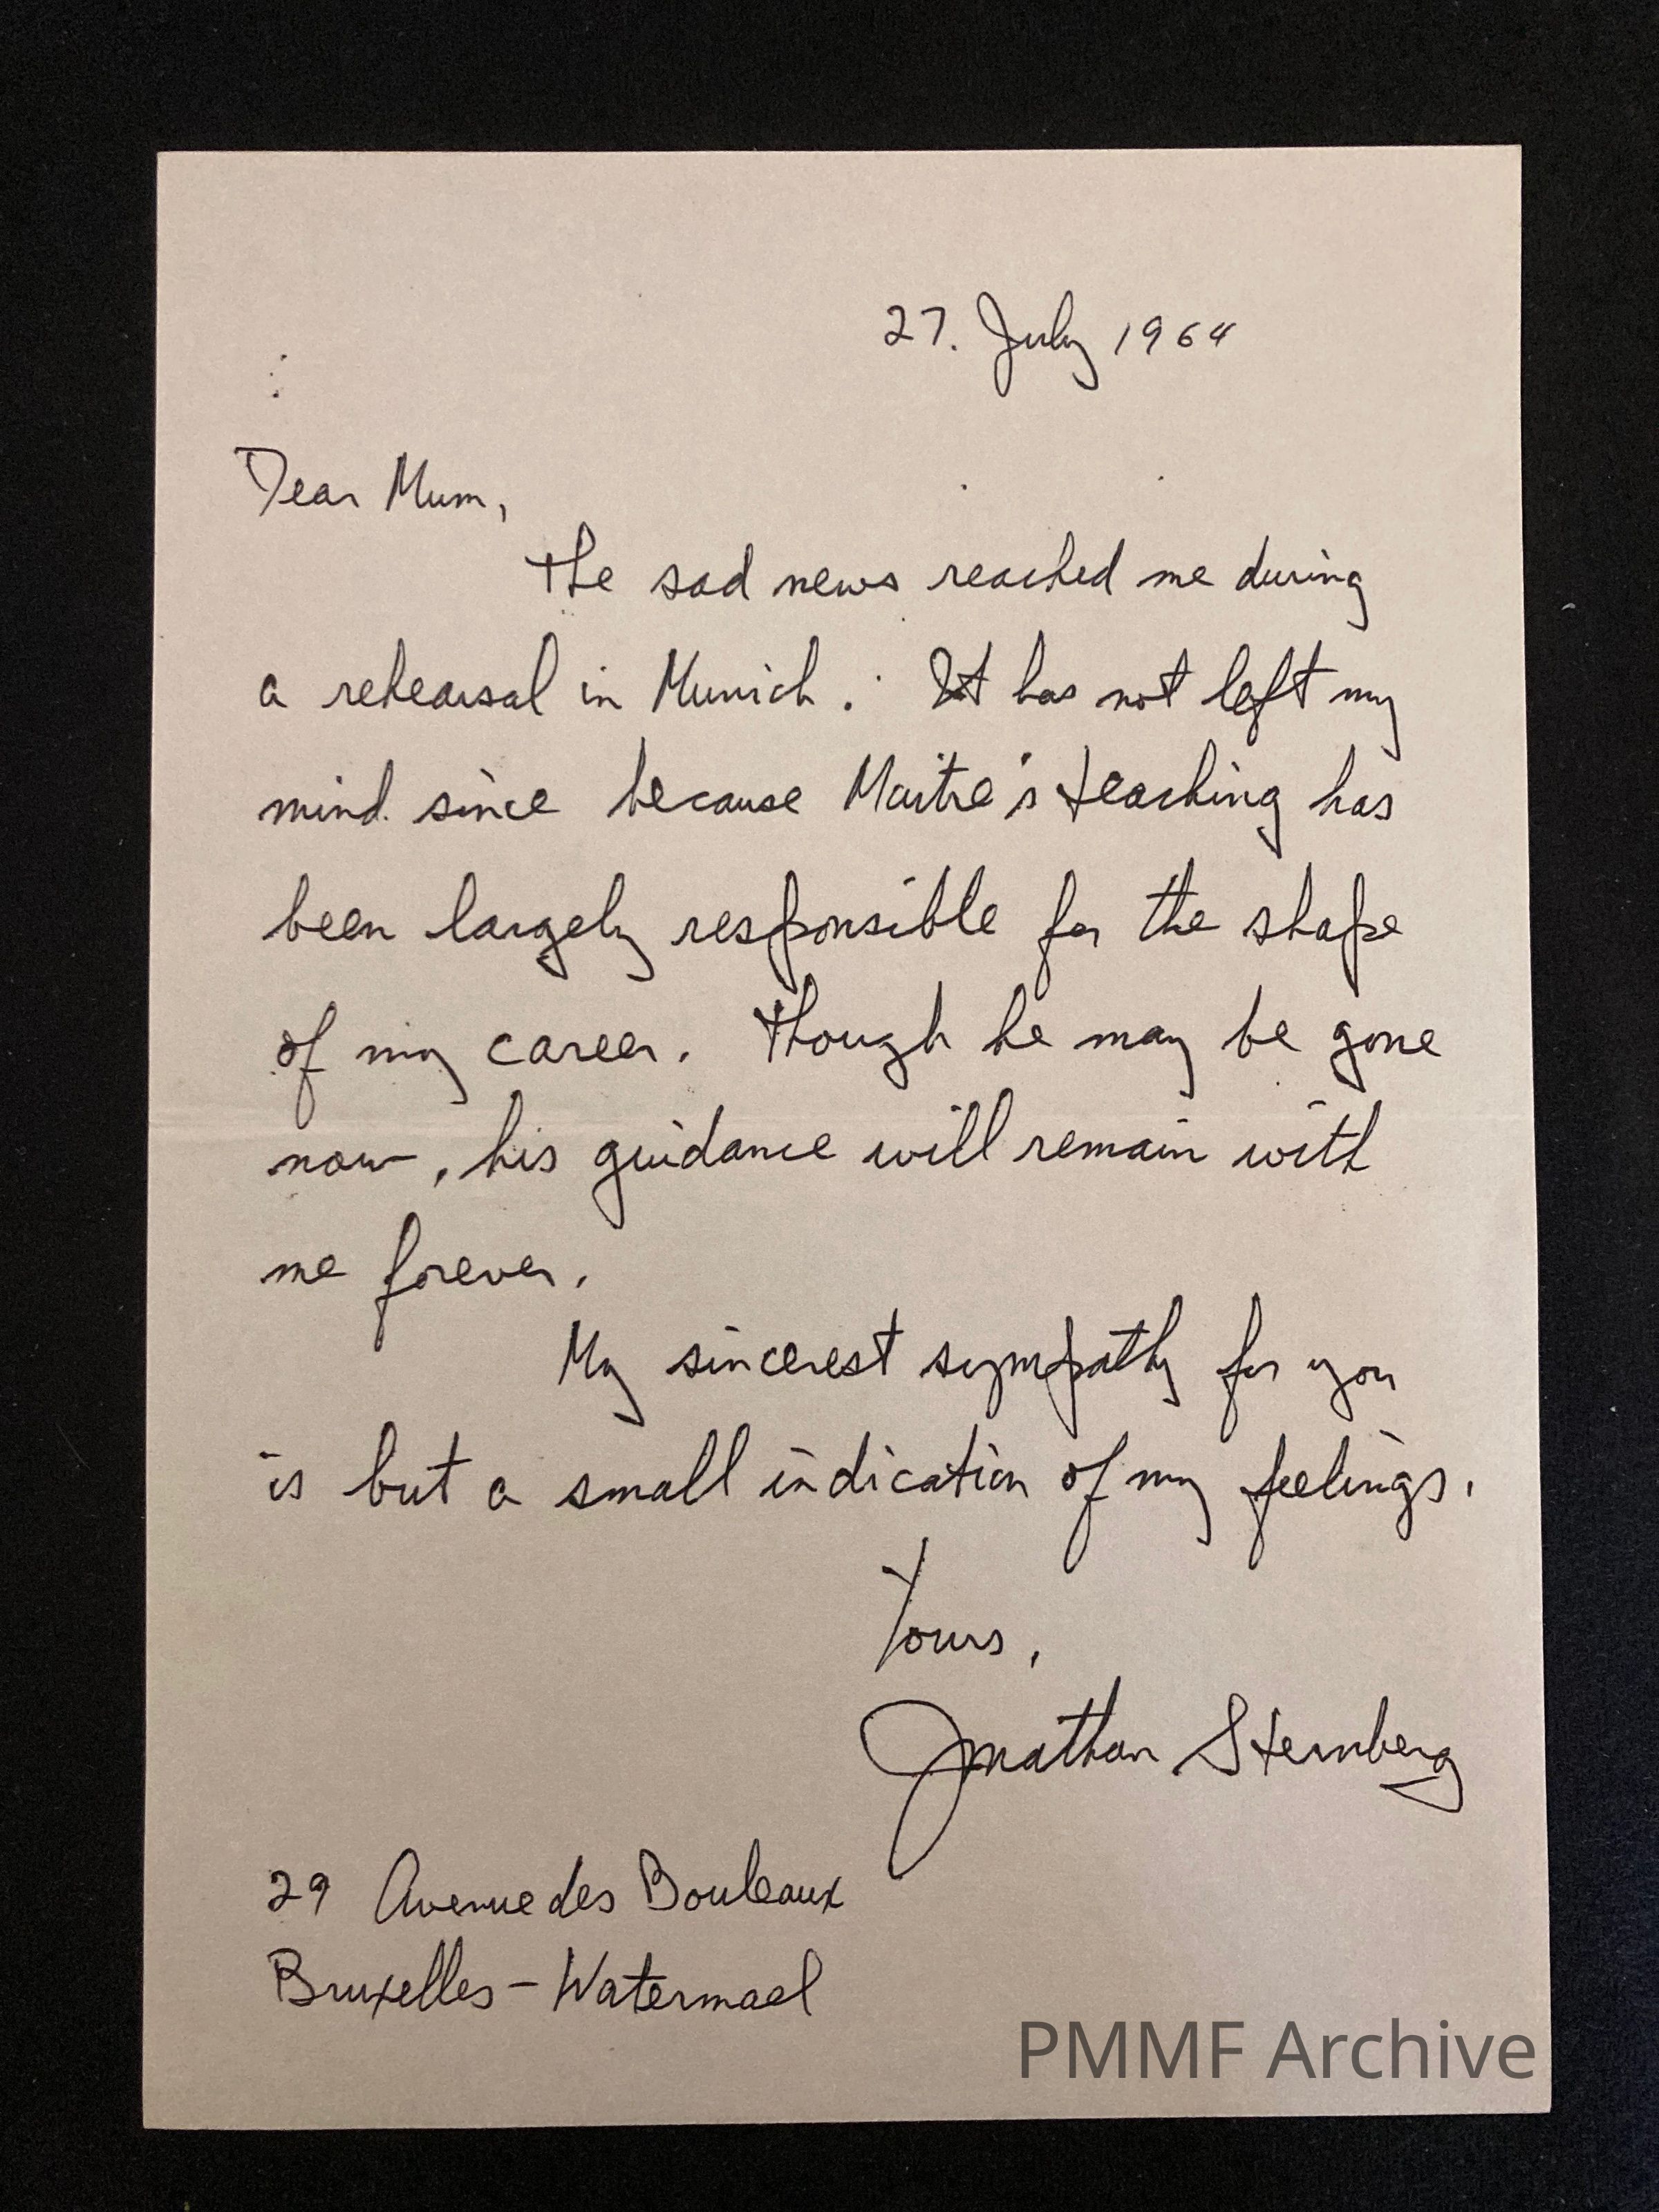 27. July 1964
Dear Mum,
The sad news reached me during
a rehearsal in Munich. It has not left my
mind since because Maitre's teaching has
been largely responsible for the shape
of my career. Though he may be gone
now, his guidance will remain with
me forever.
My sincerest sympathy for you
is but a small indication of my feelings.
Yours,
Jonathan Sternberg
29 Avenue des Bouleaux
Bruxelles - Watermael
PMMF Archive